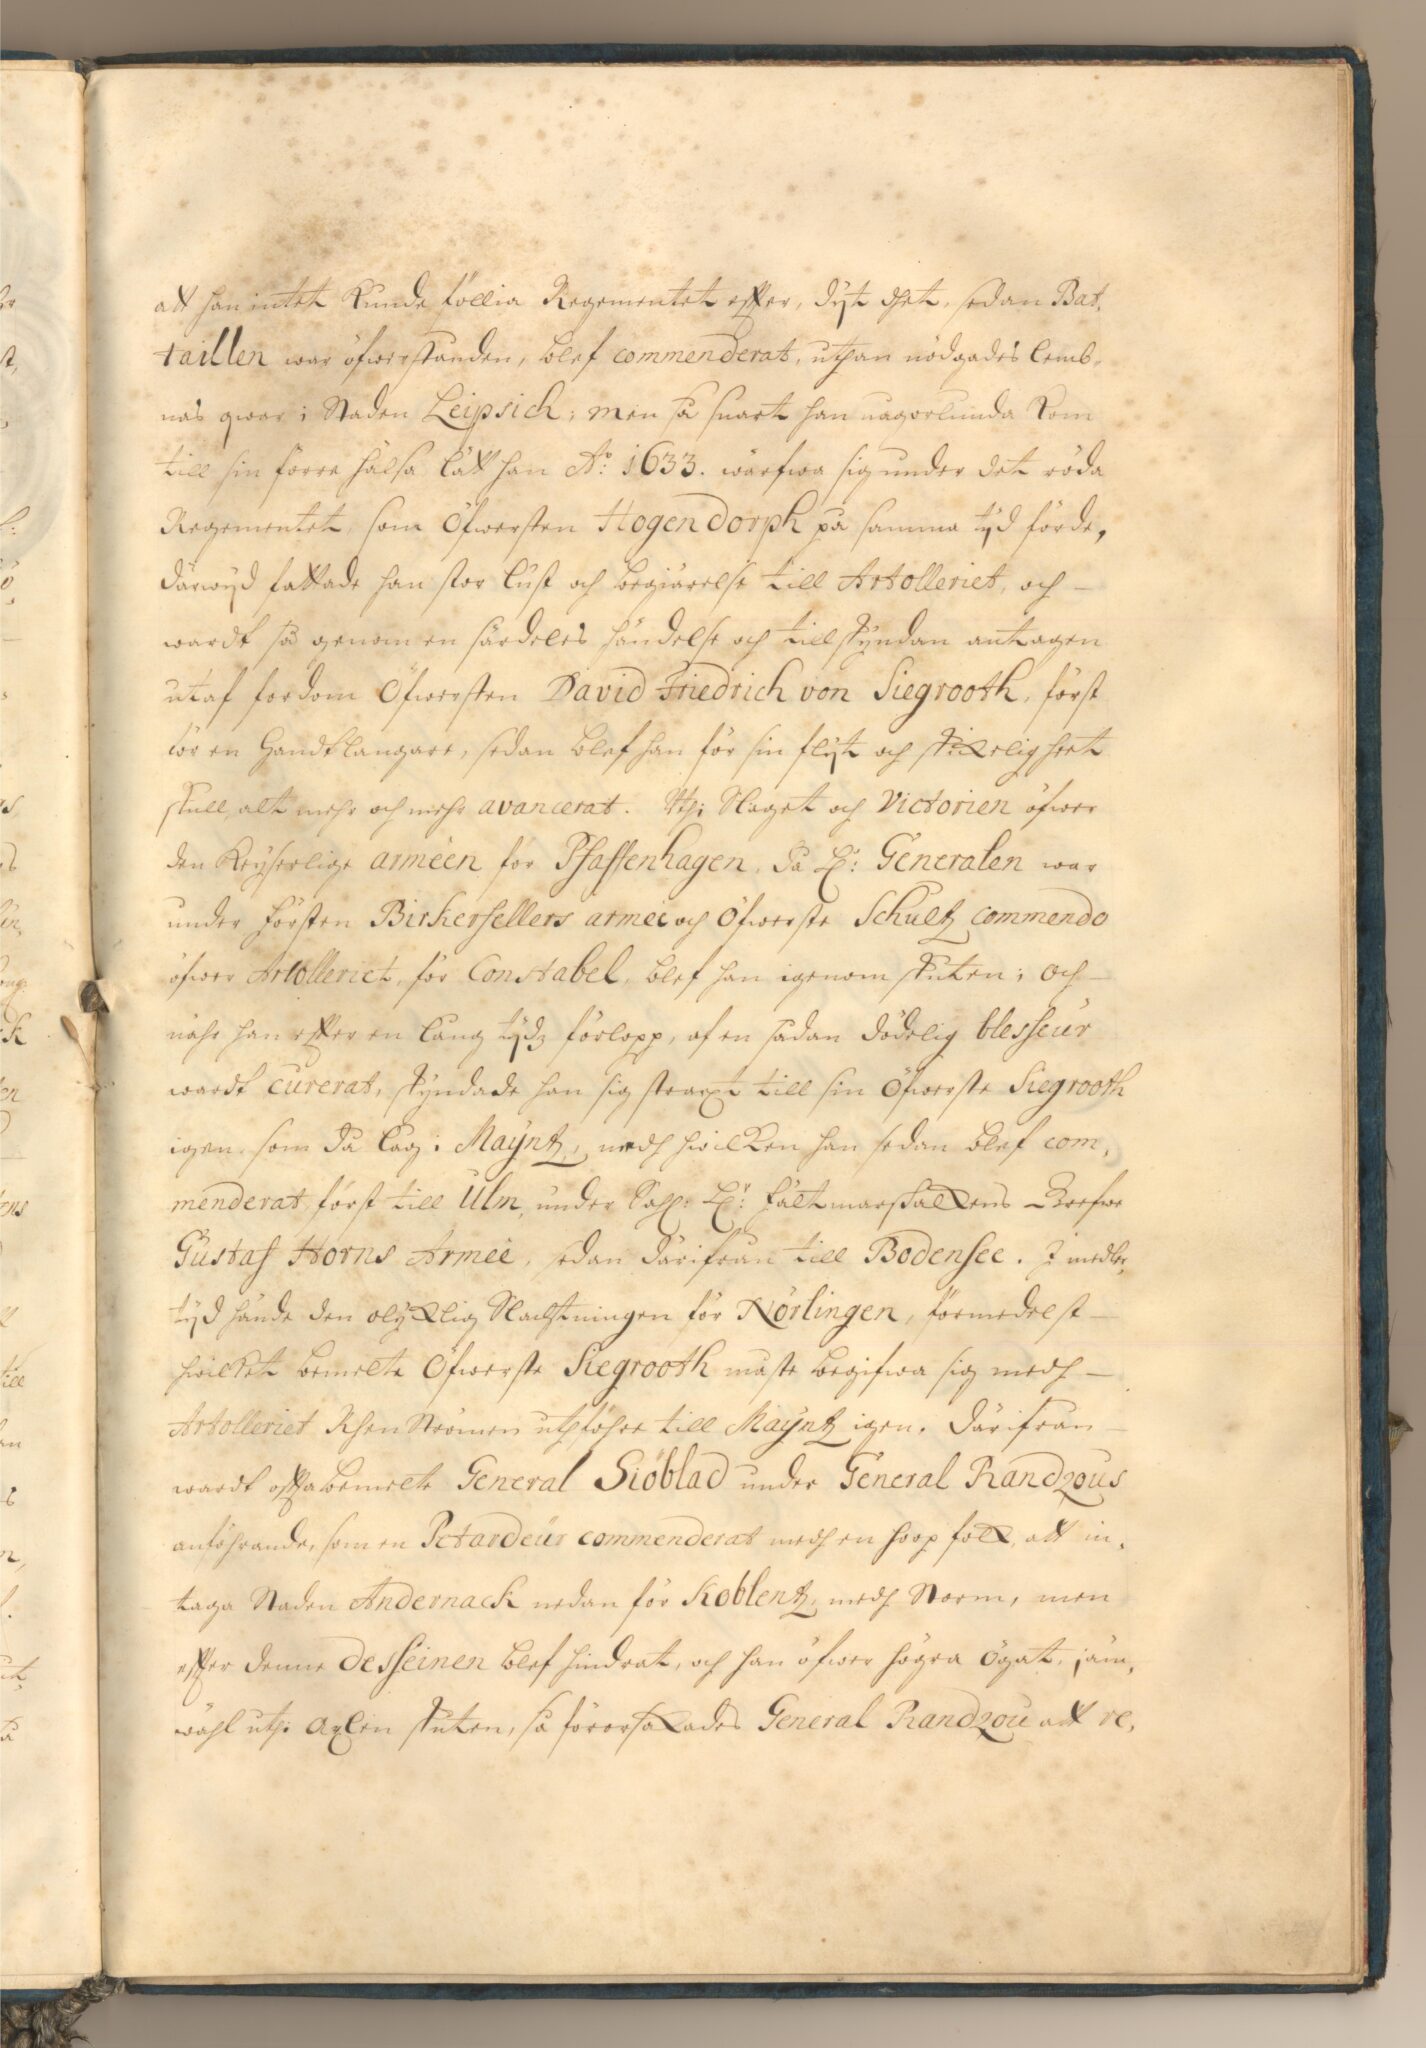 att han intet kunde föllia Regementet effter, dyt dhet, sedan Bat,
taillen war öfwerstånden, blef commenderat, uthan nödgades lemb,
nas qwar i Staden Leipsich; men så snart han någorlunda kom
till sin förre hälsa lätt han Aº: 1633. wärfwa sig under det röda
Regementet, som Öfwersten Hogendorph på samma tyd förde,
därwyd fattade han stor lust och begiärelse till Artolleriet, och
wardt så genom en särdeles händelse och tillskyndan antagen
utaf fordom Öfwersten David Friedrich von Siegrooth, först
för en Handtlangare, sedan blef han för sin flyt och skickeligheet
skull, alt mehr och mehr avancerat. Uthi Slaget och Victorien öfwer
den Keyserlige arméen för Pfaffenhagen, då Hr: Generalen war
under Försten Birkerfellers armee och Öfwerste Schultz commendo
öfwer Artolleriet, för Constabel, blef han igenom skuten; och
nähr han effter en lång tydz förlopp, af en sådan dödelig blesseur
wardt curerat, skyndade han sig straxt till sin Öfwerste Siegrooth
igen, som då låg i Mayntz, medh hwilken han sedan blef com,
menderat, först till Ulm, under Sahl: Hr: Fältmarskallkens Grefwe
Gustaf Horns Armée, sedan därifrån till Bodensee. I medler,
tyd hände den olycklig Slachtningen för Nörlingen, förmedelst
hwilket bemelte Öfwerste Siegrooth måste begifwa sig medh
Artolleriet Rhen Strömen uthföhre till Mayntz igen. Därifrån
wardt offtabemelte General Siöblad under General Randzous
anföhrande, som en Petardeur commenderat medh en hoop folck, att in,
taga Staden Andernack nedan för Koblentz, medh Storm, men
effter denne desseinen blef hindrat, och han öfwer högra ögat, jäm,
wähl uthi axlen skuten, så förorsakades General Randzou att re,